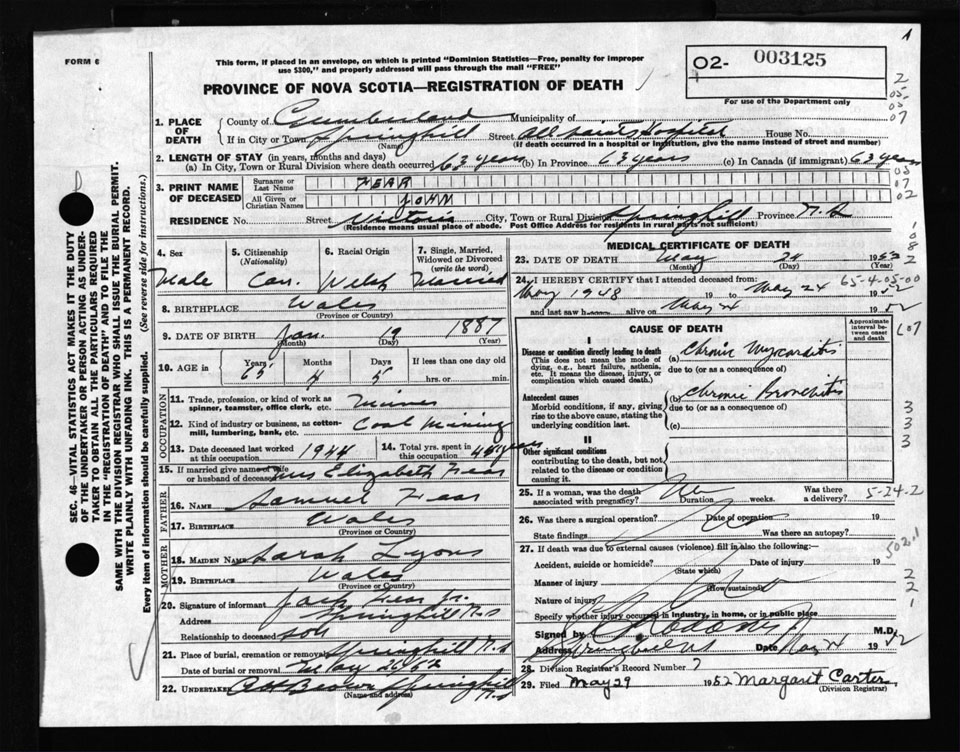 FORM 6
This form, if placed in an envelope, on which is printed "Dominion Statistics—Free, penalty for improper
use $300," and properly addressed will pass through the mail "FREE"
O2- 003125
For use of the Department only
PROVINCE OF NOVA SCOTIA—REGISTRATION OF DEATH
1. PLACE OF DEATH County of Cumberland Municipality of
If in City or Town Springhill (Name) Street All Saints Hospital House No.
(If death occurred in a hospital or institution, give the name instead of street and number)
2. LENGTH OF STAY (in years, months and days)
(a) In City, Town or Rural Division where death occurred 63 years (b) In Province 63 years (c) In Canada (if immigrant) 63 years
3. PRINT NAME OF DECEASED Surname or Last Name FEAR
All Given or Christian Names JOHN
RESIDENCE No. Street Victoria City, Town or Rural Division Springhill Province N.S
(Residence means usual place of abode. Post Office Address for residents in rural parts not sufficient)
4. Sex Male
5. Citizenship (Nationality) Can.
6. Racial Origin Welsh
7. Single, Married, Widowed or Divorced (write the word) Married
8. BIRTHPLACE Wales
(Province or Country)
9. DATE OF BIRTH Jan. 19 1887
(Month) (Day) (Year)
10. AGE in Years 65 Months 4 Days 5 If less than one day old hrs. or min.
OCCUPATION
11. Trade, profession, or kind of work as spinner, teamster, office clerk, etc. Miner
12. Kind of industry or business, as cotton-mill, lumbering, bank, etc. Coal Mining
13. Date deceased last worked at this occupation 1944
14. Total yrs. spent in this occupation years
15. If married give name of wife or husband of deceased Mrs Elizabeth Fear
FATHER
16. NAME Samuel Fear
17. BIRTHPLACE Wales
(Province or Country)
MOTHER
18. MAIDEN NAME Sarah Lyons
19. BIRTHPLACE Wales
(Province or Country)
20. Signature of informant Jack Fear Jr.
Address Springhill N.S
Relationship to deceased Son
21. Place of burial, cremation or removal Springhill N.S
Date of burial or removal May
22. UNDERTAKER Brown Springhill N.S
(Name and address)
MEDICAL CERTIFICATE OF DEATH
23. DATE OF DEATH May 24 19
(Month) (Day) (Year)
65-4-05-00
24. I HEREBY CERTIFY that I attended deceased from:
May 1948 19 to May 24 1952
and last saw h alive on May 24 1952
CAUSE OF DEATH
Approximate interval between onset and death
I
Disease or condition directly leading to death
(This does not mean the mode of dying, e.g., heart failure, asthenia, etc. It means the disease, injury, or complication which caused death.)
(a) Chronic Myocarditis
due to (or as a consequence of)
Antecedent causes
Morbid conditions, if any, giving rise to the above cause, stating the underlying condition last.
(b) Chronic Bronchitis
due to (or as a consequence of)
(c)
II
Other significant conditions
contributing to the death, but not related to the disease or condition causing it.
25. If a woman, was the death associated with pregnancy? Duration weeks. Was there a delivery?
5-24-2
26. Was there a surgical operation? Date of operation 19
State findings Was there an autopsy?
27. If death was due to external causes (violence) fill in also the following:—
Accident, suicide or homicide? Date of injury 19
(State which)
Manner of injury
(How sustained)
Nature of injury
Specify whether injury occurred in industry, in home, or in public place
Signed by M.D.
Address Springhill Date May 24 1952
28. Division Registrar's Record Number 7
29. Filed May 29 1952 Margaret Carter
(Division Registrar)
SEC. 46—VITAL STATISTICS ACT MAKES IT THE DUTY
OF THE UNDERTAKER OR PERSON ACTING AS UNDER-
TAKER TO OBTAIN ALL THE PARTICULARS REQUIRED
IN THE "REGISTRATION OF DEATH" AND TO FILE THE
SAME WITH THE DIVISION REGISTRAR WHO SHALL ISSUE THE BURIAL PERMIT.
WRITE PLAINLY WITH UNFADING INK. THIS IS A PERMANENT RECORD.
Every item of information should be carefully supplied. (See reverse side for instructions.)